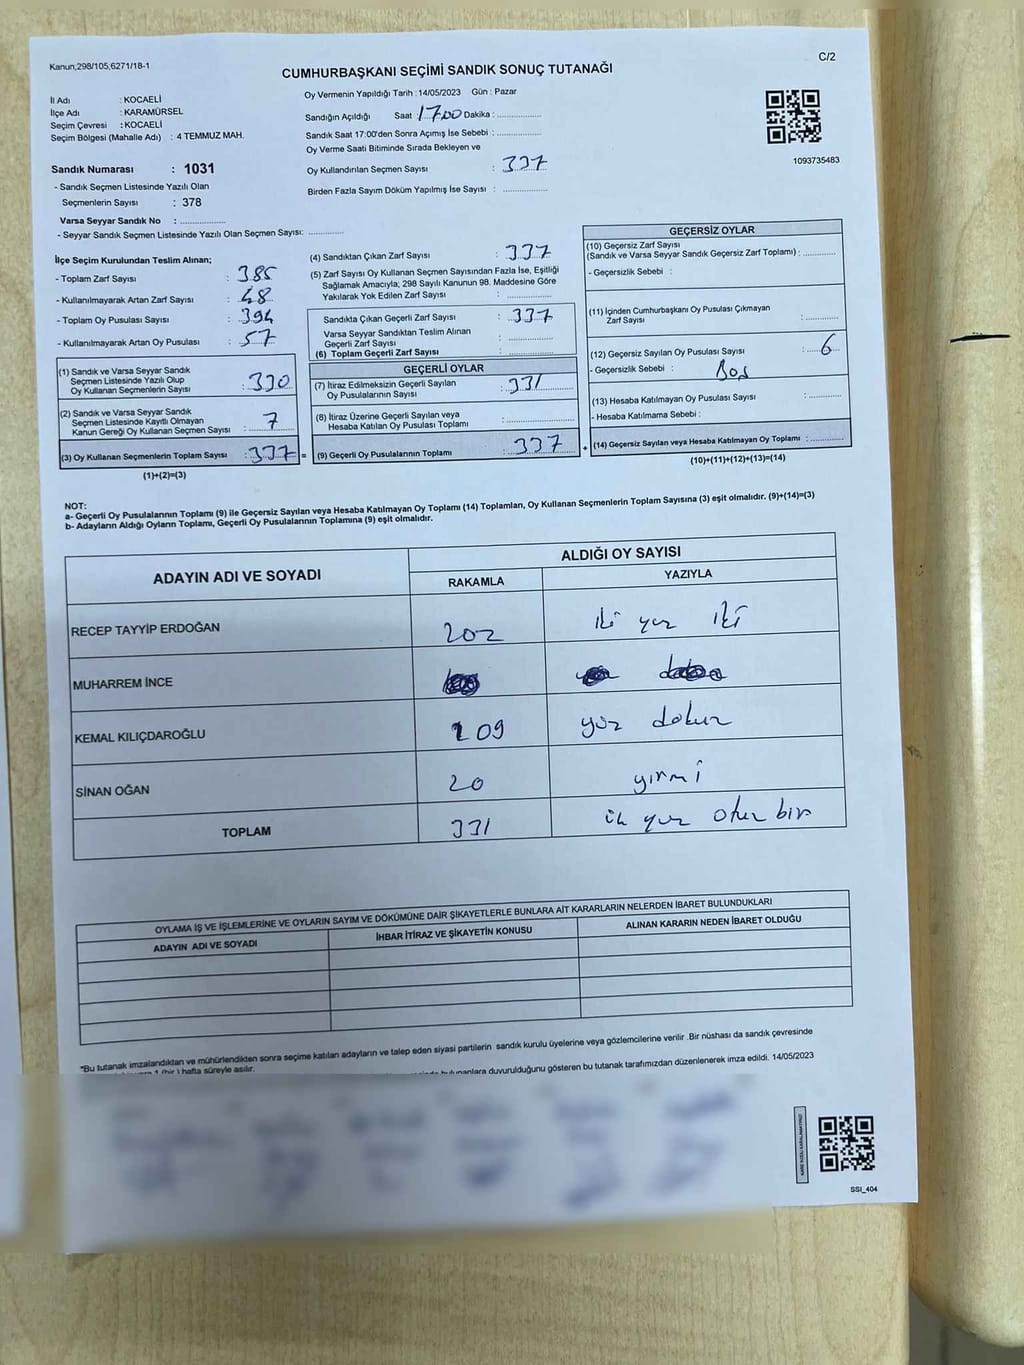 Kanun;298/105;6271/18-1
C/2
CUMHURBAŞKANI SEÇİMİ SANDIK SONUÇ TUTANAĞI
İl Adı : KOCAELİ
İlçe Adı : KARAMÜRSEL
Seçim Çevresi : KOCAELİ
Seçim Bölgesi (Mahalle Adı) : 4 TEMMUZ MAH.
Sandık Numarası : 1031
- Sandık Seçmen Listesinde Yazılı Olan
Seçmenlerin Sayısı : 378
Varsa Seyyar Sandık No : ....................
- Seyyar Sandık Seçmen Listesinde Yazılı Olan Seçmen Sayısı: ...............
Oy Vermenin Yapıldığı Tarih : 14/05/2023 Gün : Pazar
Sandığın Açıldığı Saat : 1700 Dakika : ...............
Sandık Saat 17:00'den Sonra Açımış İse Sebebi : ...............
Oy Verme Saati Bitiminde Sırada Bekleyen ve
Oy Kullandırılan Seçmen Sayısı : 337
Birden Fazla Sayım Döküm Yapılmış İse Sayısı : ...............
1093735483
İlçe Seçim Kurulundan Teslim Alınan;
- Toplam Zarf Sayısı : 385
- Kullanılmayarak Artan Zarf Sayısı : 48
- Toplam Oy Pusulası Sayısı : 394
- Kullanılmayarak Artan Oy Pusulası : 57
(1) Sandık ve Varsa Seyyar Sandık
Seçmen Listesinde Yazılı Olup
Oy Kullanan Seçmenlerin Sayısı : 330
(2) Sandık ve Varsa Seyyar Sandık
Seçmen Listesinde Kayıtlı Olmayan
Kanun Gereği Oy Kullanan Seçmen Sayısı : 7
(3) Oy Kullanan Seçmenlerin Toplam Sayısı : 337 =
(1)+(2)=(3)
(4) Sandıktan Çıkan Zarf Sayısı : 337
(5) Zarf Sayısı Oy Kullanan Seçmen Sayısından Fazla İse, Eşitliği
Sağlamak Amacıyla; 298 Sayılı Kanunun 98. Maddesine Göre
Yakılarak Yok Edilen Zarf Sayısı : ...............
Sandıkta Çıkan Geçerli Zarf Sayısı : 337
Varsa Seyyar Sandıktan Teslim Alınan
Geçerli Zarf Sayısı : ...............
(6) Toplam Geçerli Zarf Sayısı : ...............
GEÇERLİ OYLAR
(7) İtiraz Edilmeksizin Geçerli Sayılan
Oy Pusulalarının Sayısı : 331
(8) İtiraz Üzerine Geçerli Sayılan veya
Hesaba Katılan Oy Pusulası Toplamı : ...............
(9) Geçerli Oy Pusulalarının Toplamı : 337 +
GEÇERSİZ OYLAR
(10) Geçersiz Zarf Sayısı
(Sandık ve Varsa Seyyar Sandık Geçersiz Zarf Toplamı) : ...............
- Geçersizlik Sebebi :
(11) İçinden Cumhurbaşkanı Oy Pusulası Çıkmayan
Zarf Sayısı : ...............
(12) Geçersiz Sayılan Oy Pusulası Sayısı : 6
- Geçersizlik Sebebi : Boş
(13) Hesaba Katılmayan Oy Pusulası Sayısı : ...............
- Hesaba Katılmama Sebebi :
(14) Geçersiz Sayılan veya Hesaba Katılmayan Oy Toplamı : ...............
(10)+(11)+(12)+(13)=(14)
NOT:
a- Geçerli Oy Pusulalarının Toplamı (9) ile Geçersiz Sayılan veya Hesaba Katılmayan Oy Toplamı (14) Toplamları, Oy Kullanan Seçmenlerin Toplam Sayısına (3) eşit olmalıdır. (9)+(14)=(3)
b- Adayların Aldığı Oyların Toplamı, Geçerli Oy Pusulalarının Toplamına (9) eşit olmalıdır.
ADAYIN ADI VE SOYADI
ALDIĞI OY SAYISI
RAKAMLA YAZIYLA
RECEP TAYYİP ERDOĞAN 202 iki yüz iki
MUHARREM İNCE
KEMAL KILIÇDAROĞLU 109 yüz dokuz
SİNAN OĞAN 20 yirmi
TOPLAM 331 yüz otuz bir
OYLAMA İŞ VE İŞLEMLERİNE VE OYLARIN SAYIM VE DÖKÜMÜNE DAİR ŞİKAYETLERLE BUNLARA AİT KARARLARIN NELERDEN İBARET BULUNDUKLARI
ADAYIN ADI VE SOYADI İHBAR İTİRAZ VE ŞİKAYETİN KONUSU ALINAN KARARIN NEDEN İBARET OLDUĞU
"Bu tutanak imzalandıktan ve mühürlendikten sonra seçime katılan adayların ve talep eden siyasi partilerin sandık kurulu üyelerine veya gözlemcilerine verilir .Bir nüshası da sandık çevresinde
1 (bir ) hafta süreyle asılır.
bulunanlara duyurulduğunu gösteren bu tutanak tarafımızdan düzenlenerek imza edildi. 14/05/2023
SSI_404